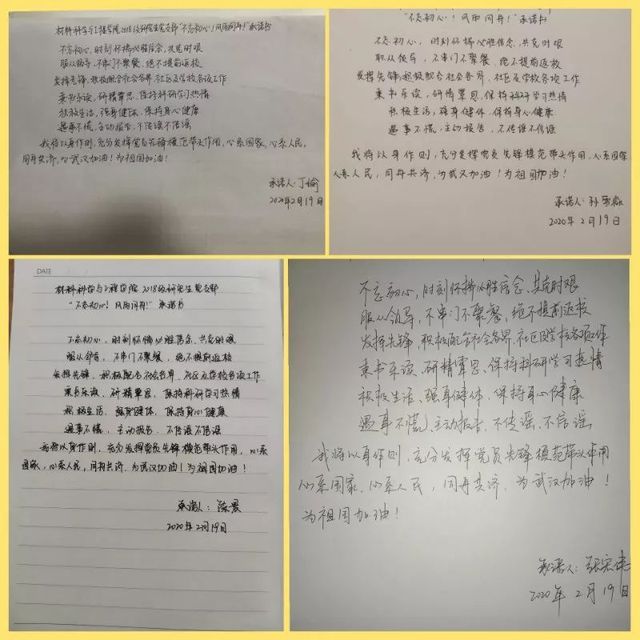 材料科学与工程学院2018级研究生党支部“不忘初心！风雨同舟！”承诺书
不忘初心，时刻怀揣必胜信念、共克时艰
服从领导，不串门不聚餐，绝不提前返校
发挥先锋，积极配合社会各界、社区及学校各项工作
秉书乐读，研精覃思，保持科研学习热情
积极生活，强身健体，保持身心健康
遇事不慌，主动报告，不传谣不信谣
我将以身作则，充分发挥党员先锋模范带头作用，心系国家，心系人民，
同舟共济，为武汉加油！为祖国加油！
承诺人：丁愉
2020年2月19日
“不忘初心！风雨同舟！”承诺书
不忘初心，时刻怀揣必胜信念，共克时艰
服从领导，不串门不聚餐，绝不提前返校
发挥先锋，积极配合社会各界，社区及学校各项工作
秉书乐读，研精覃思，保持科研学习热情
积极生活，强身健体，保持身心健康
遇事不慌，主动报告，不传谣不信谣
我将以身作则，充分发挥党员先锋模范带头作用，心系国家
心系人民，同舟共济，为武汉加油！为祖国加油！
承诺人：孙
2020年2月19日
DATE
材料科学与工程学院2018级研究生党支部
“不忘初心！风雨同舟！”承诺书
不忘初心，时刻怀揣必胜信念，共克时艰
服从领导，不串门不聚餐，绝不提前返校
发挥先锋，积极配合社会各界，社区及学校各项工作
秉书乐读，研精覃思，保持科研学习热情
积极生活，强身健体，保持身心健康
遇事不慌，主动报告，不传谣不信谣
我将以身作则，充分发挥党员先锋模范带头作用，心系
国家，心系人民，同舟共济，为武汉加油！为祖国加油！
承诺人：陈
2020年2月19日
不忘初心，时刻怀揣必胜信念、共克时艰
服从领导，不串门不聚餐，绝不提前返校
发挥先锋，积极配合社会各界，社区及学校各项工作
秉书乐读，研精覃思、保持科研学习热情
积极生活，强身健体，保持身心健康
遇事不慌，主动报告、不传谣、不信谣
我将以身作则、充分发挥党员先锋模范带头作用
心系国家、心系人民，同舟共济，为武汉加油！
为祖国加油！
承诺人：张宏伟
2020年2月19日